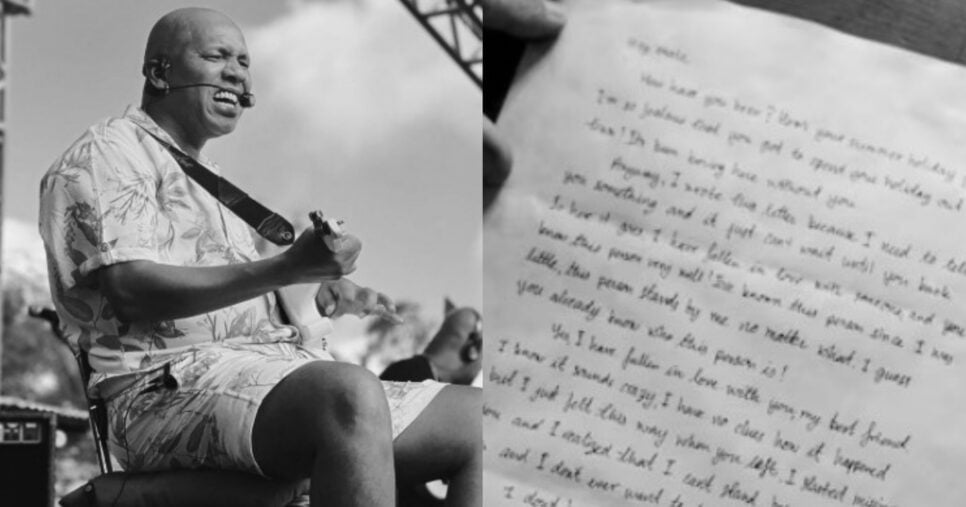 Hey mate,
How have you been? How's your summer holiday
I'm so jealous that you got to spend your holiday out
I'm been boring here without you.
Anyway, I wrote this letter because I need to tell
you something and it just can't wait until you back
So here it goes I have fallen in love with someone, and you
know this person very well! I've known this person since I was
little, this person stands by me no matter what. I guess
you already know who this person is!
Yes I have fallen in love with you, my best friend
I know it sounds crazy, I have no clues how it happened
but I just felt this way when you left. I started missing
you and I realized that I can't stand
and I don't ever want to
I don't